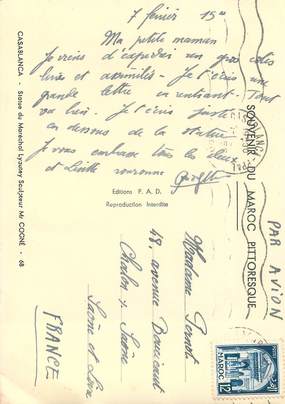 7 février 15h
Ma petite maman
Je viens d'expédier un gros colis
livres et assimilés - je t'écris une
grande lettre en rentrant - Tout
va bien. Je t'écris juste
en dessous de la statue
Je vous embrasse tous les deux
et Lisette
Editions P. A. D.
Reproduction Interdite
CASABLANCA - Statue du Maréchal Lyautey Sculpteur Mr COGNE - 68
SOUVENIR DU MAROC PITTORESQUE
PAR AVION
Madame Pernot
48, avenue Boucicaut
Chalon s/ Saône
Saône et Loire
FRANCE
MAROC
12